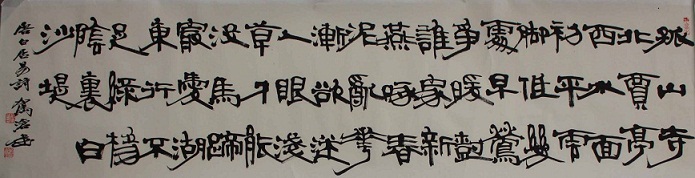 孤山寺
北賈亭
西水面
初平雲
脚低幾
處早鶯
爭暖樹
誰家新
燕啄春
泥亂花
漸欲迷
人眼淺
草才能
没馬蹄
最愛湖
東行不
足綠楊
陰裏白
沙堤
唐白居易詞